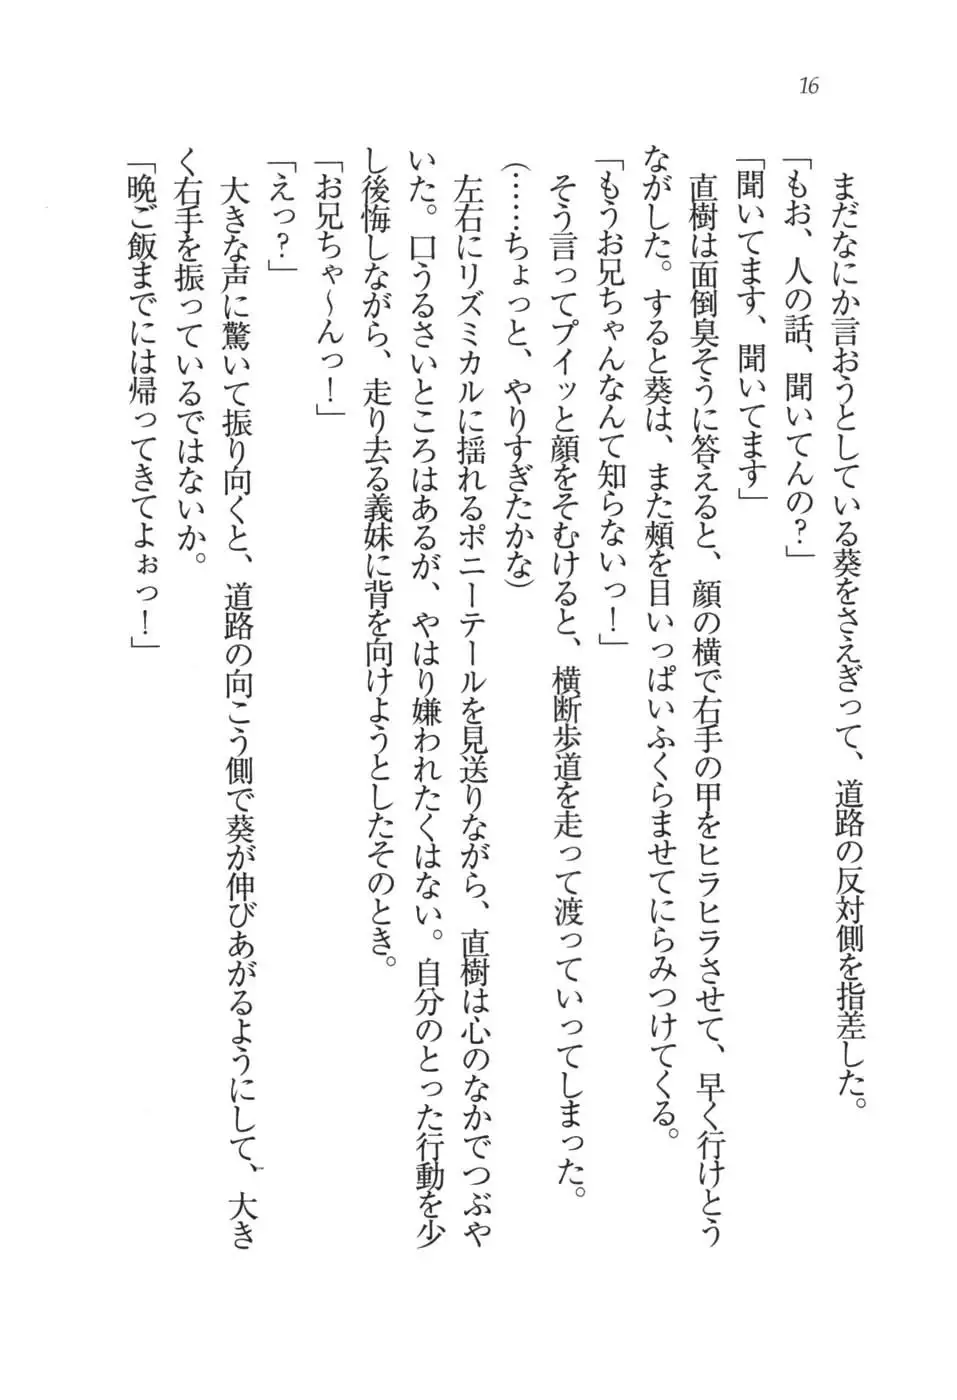 16
まだなにか言おうとしている葵をさえぎって、道路の反対側を指差した。
「もお、人の話、聞いてんの？」
「聞いてます、聞いてます」
直樹は面倒臭そうに答えると、顔の横で右手の甲をヒラヒラさせて、早く行けとう
ながした。すると葵は、また頰を目いっぱいふくらませてにらみつけてくる。
「もうお兄ちゃんなんて知らないっ！」
そう言ってプイッと顔をそむけると、横断歩道を走って渡っていってしまった。
（……ちょっと、やりすぎたかな）
左右にリズミカルに揺れるポニーテールを見送りながら、直樹は心のなかでつぶや
いた。口うるさいところはあるが、やはり嫌われたくはない。自分のとった行動を少
し後悔しながら、走り去る義妹に背を向けようとしたそのとき。
「お兄ちゃ〜んっ！」
「えっ？」
大きな声に驚いて振り向くと、道路の向こう側で葵が伸びあがるようにして、大き
く右手を振っているではないか。
「晩ご飯までには帰ってきてよぉっ！」